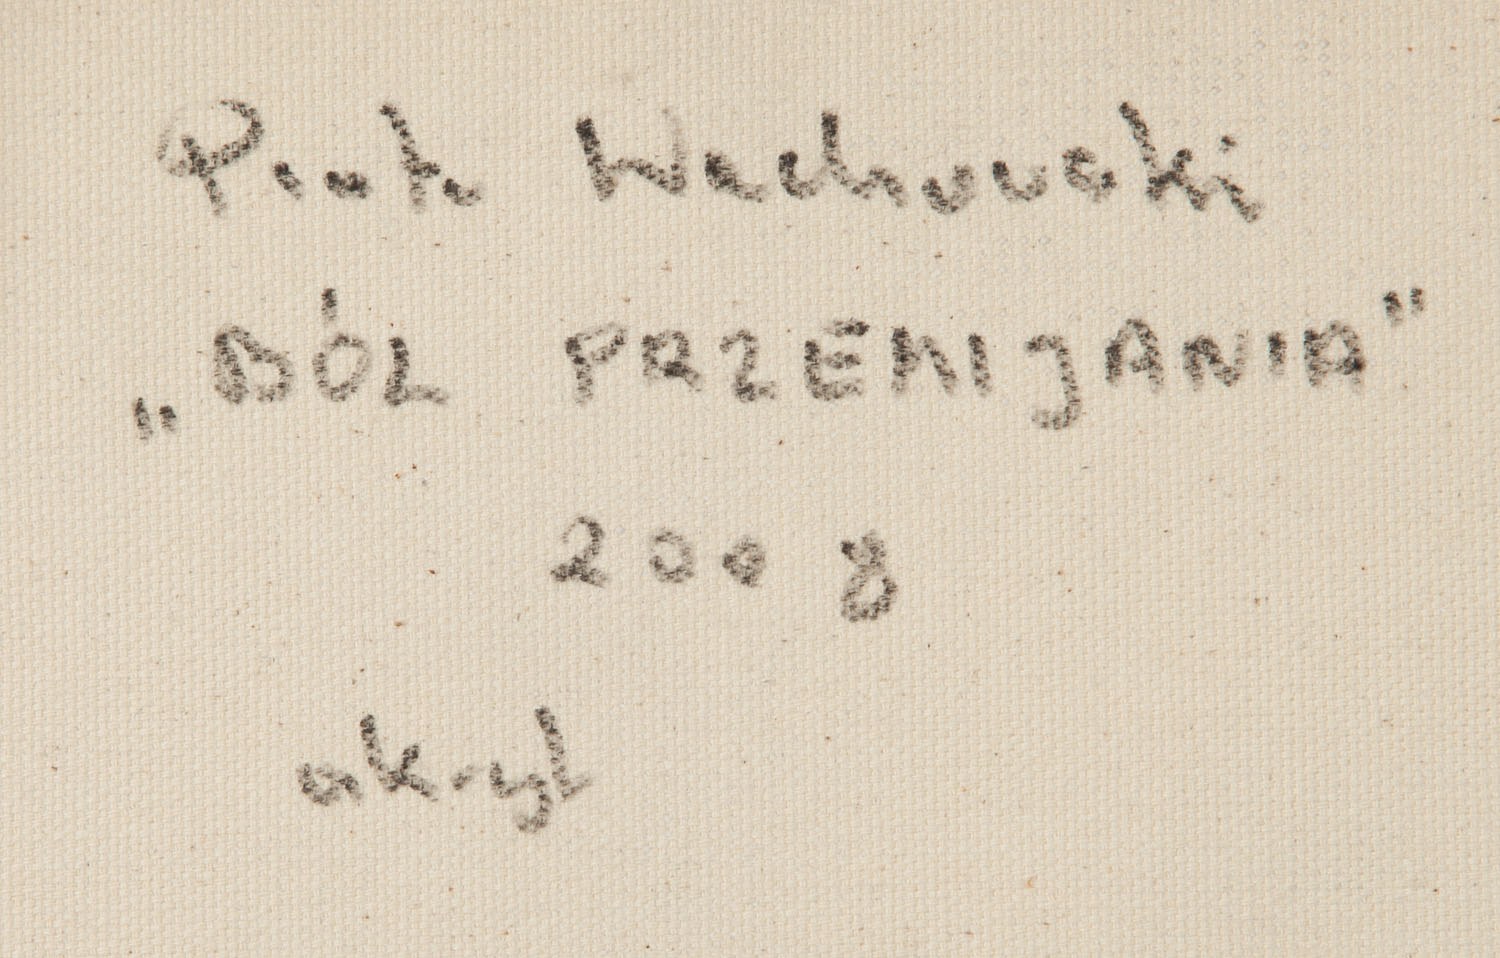 Piotr Wachowski
„BÓL PRZEMIJANIA”
2008
akryl